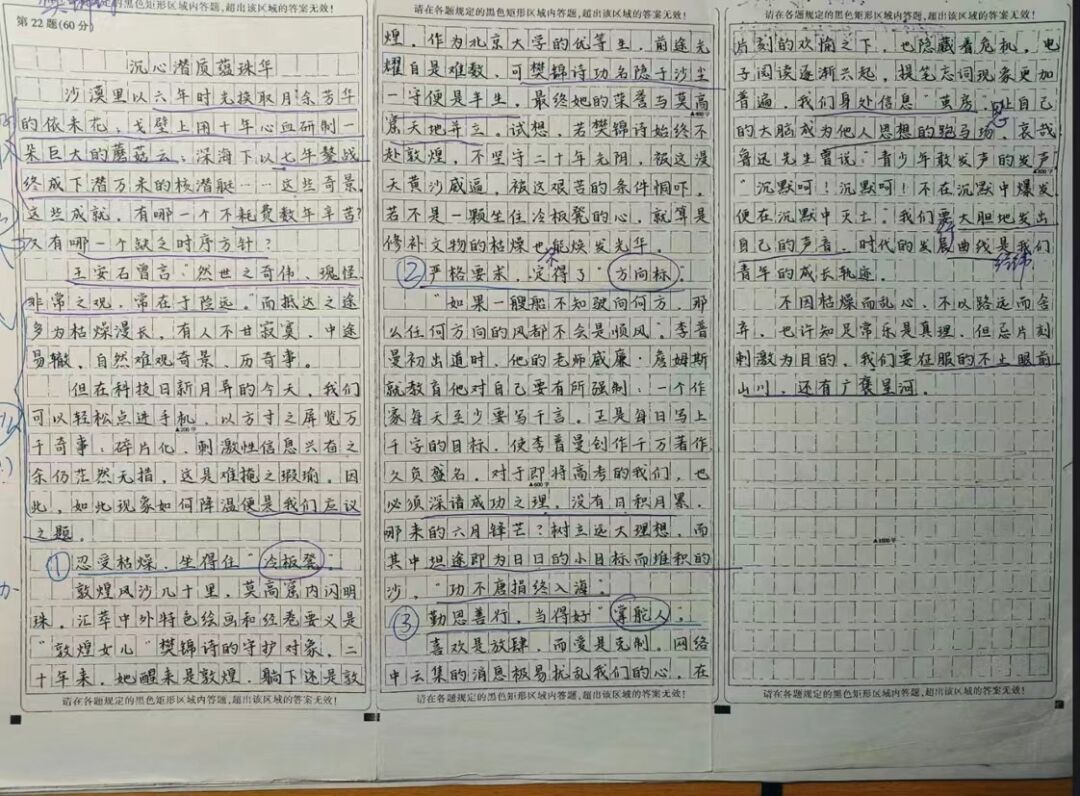 请在各题规定的黑色矩形区域内答题,超出该区域的答案无效!
第22题(60分)
沉心潜质蕴珠华
沙漠里以六年时光换取月余芳华
的依米花,戈壁上用十年心血研制一
朵巨大的蘑菇云,深海下以七年鏖战
终成下潜万米的核潜艇……这些奇景,
这些成就,有哪一个不耗费数年辛苦?
又有哪一个缺乏时序方针?
王安石曾言"然世之奇伟、瑰怪、
非常之观,常在于险远。"而抵达之途
多为枯燥漫长,有人不甘寂寞,中途
易辙,自然难观奇景、历奇事。
但在科技日新月异的今天,我们
可以轻松点进手机,以方寸之屏览万
千奇事,碎片化、刺激性信息兴奋之
余仍茫然无措,这是难掩之瑕瑜,因
此,如此现象如何降温便是我们应议
之题。
①忍受枯燥,坐得住"冷板凳"。
敦煌风沙几十里,莫高窟内闪明
珠。汇萃中外特色绘画和经卷要义是
"敦煌女儿"樊锦诗的守护对象,二
十年来,她醒来是敦煌,躺下还是敦
请在各题规定的黑色矩形区域内答题,超出该区域的答案无效!
请在各题规定的黑色矩形区域内答题,超出该区域的答案无效!
煌,作为北京大学的优等生,前途光
耀自是难数,可樊锦诗功名隐于沙尘
一守便是半生,最终她的荣誉与莫高
窟天地并立。试想,若樊锦诗始终不
赴敦煌,不坚守二十年光阴,被这漫
天黄沙威逼,被这艰苦的条件恫吓,
若不是一颗坐住冷板凳的心,就算是
修补文物的枯燥也能焕发光华。
②严格要求,定得了"方向标"。
"如果一艘船不知驶向何方,那
么任何方向的风都不会是顺风。"李普
曼初出道时,他的老师威廉·詹姆斯
就教育他对自己要有所强制:一个作
家每天至少要写千言。正是每日写上
千字的目标,使李普曼创作千万著作,
久负盛名。对于即将高考的我们,也
必须深谙成功之理,没有日积月累,
哪来的六月锋芒?树立远大理想,而
其中坦途即为日日的小目标而堆积的
沙,"功不唐捐终入海。"
③勤思善行,当得好"掌舵人"。
喜欢是放肆,而爱是克制。网络
中云集的消息极易扰乱我们的心,在
请在各题规定的黑色矩形区域内答题,超出该区域的答案无效!
请在各题规定的黑色矩形区域内答题,超出该区域的答案无效!
片刻的欢愉之下,也隐藏着危机,电
子阅读逐渐兴起,提笔忘词现象更加
普遍,我们身处信息"茧房",让自己
的大脑成为他人思想的跑马场,哀哉!
鲁迅先生曾说:青少年敢发声的发声。
"沉默呵!沉默呵!不在沉默中爆发,
便在沉默中灭亡。"我们要大胆地发出
自己的声音,时代的发展曲线是我们
青年的成长轨迹。
不因枯燥而乱心,不以路远而舍
弃,也许知足常乐是真理,但忌片刻
刺激为目的,我们要征服的不止眼前
山川,还有广袤星河。
请在各题规定的黑色矩形区域内答题,超出该区域的答案无效!